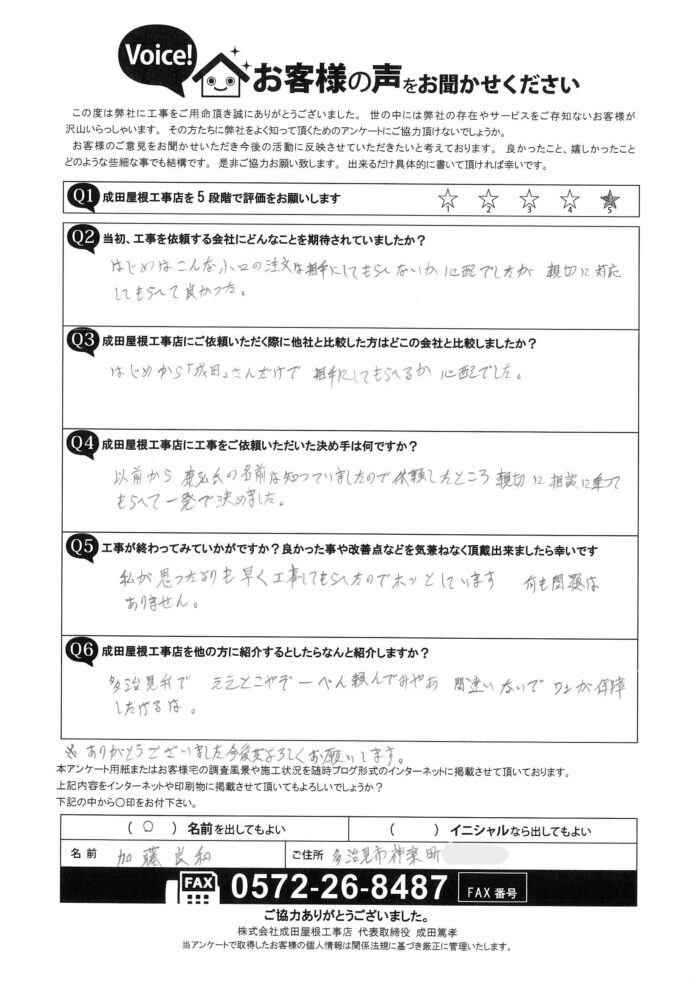 Voice!
お客様の声をお聞かせください
この度は弊社に工事をご用命頂き誠にありがとうございました。 世の中には弊社の存在やサービスをご存知ないお客様が
沢山いらっしゃいます。 その方たちに弊社をよく知って頂くためのアンケートにご協力頂けないでしょうか。
お客様のご意見をお聞かせいただき今後の活動に反映させていただきたいと考えております。 良かったこと、嬉しかったこと
どのような些細な事でも結構です。 是非ご協力お願い致します。 出来るだけ具体的に書いて頂ければ幸いです。
Q1 成田屋根工事店を 5 段階で評価をお願いします
1 2 3 4 5
Q2 当初、工事を依頼する会社にどんなことを期待されていましたか?
はじめはこんな小口の注文は相手にしてもらへないか 心配でしたが 親切に対応
してもらへて良かった。
Q3 成田屋根工事店にご依頼いただく際に他社と比較した方はどこの会社と比較しましたか?
はじめから「成田」さんだけで 相手にしてもらへるか 心配でした。
Q4 成田屋根工事店に工事をご依頼いただいた決め手は何ですか?
以前から 氏の名前は知っていましたので依頼したところ 親切に相談に乗って
もらへて一発で決めました。
Q5 工事が終わってみていかがですか?良かった事や改善点などを気兼ねなく頂戴出来ましたら幸いです
私が思ったよりも早く工事してもらへたのでホッとしています 何も問題は
ありません。
Q6 成田屋根工事店を他の方に紹介するとしたらなんと紹介しますか?
多治見弁で ええとこやぞ一ぺん頼んでみやあ 間違いないで ワシが保障
したげるは。
※ ありがとうございました今後共よろしくお願いします。
本アンケート用紙またはお客様宅の調査風景や施工状況を随時ブログ形式のインターネットに掲載させて頂いております。
上記内容をインターネットや印刷物に掲載させて頂いてもよろしいでしょうか?
下記の中から○印をお付下さい。
( ○ ) 名前を出してもよい ( ) イニシャルなら出してもよい
名 前 加藤良和 ご住所 多治見市神楽町
FAX 0572-26-8487 FAX 番号
ご協力ありがとうございました。
株式会社成田屋根工事店 代表取締役 成田篤孝
当アンケートで取得したお客様の個人情報は関係法規に基づき厳正に管理いたします。